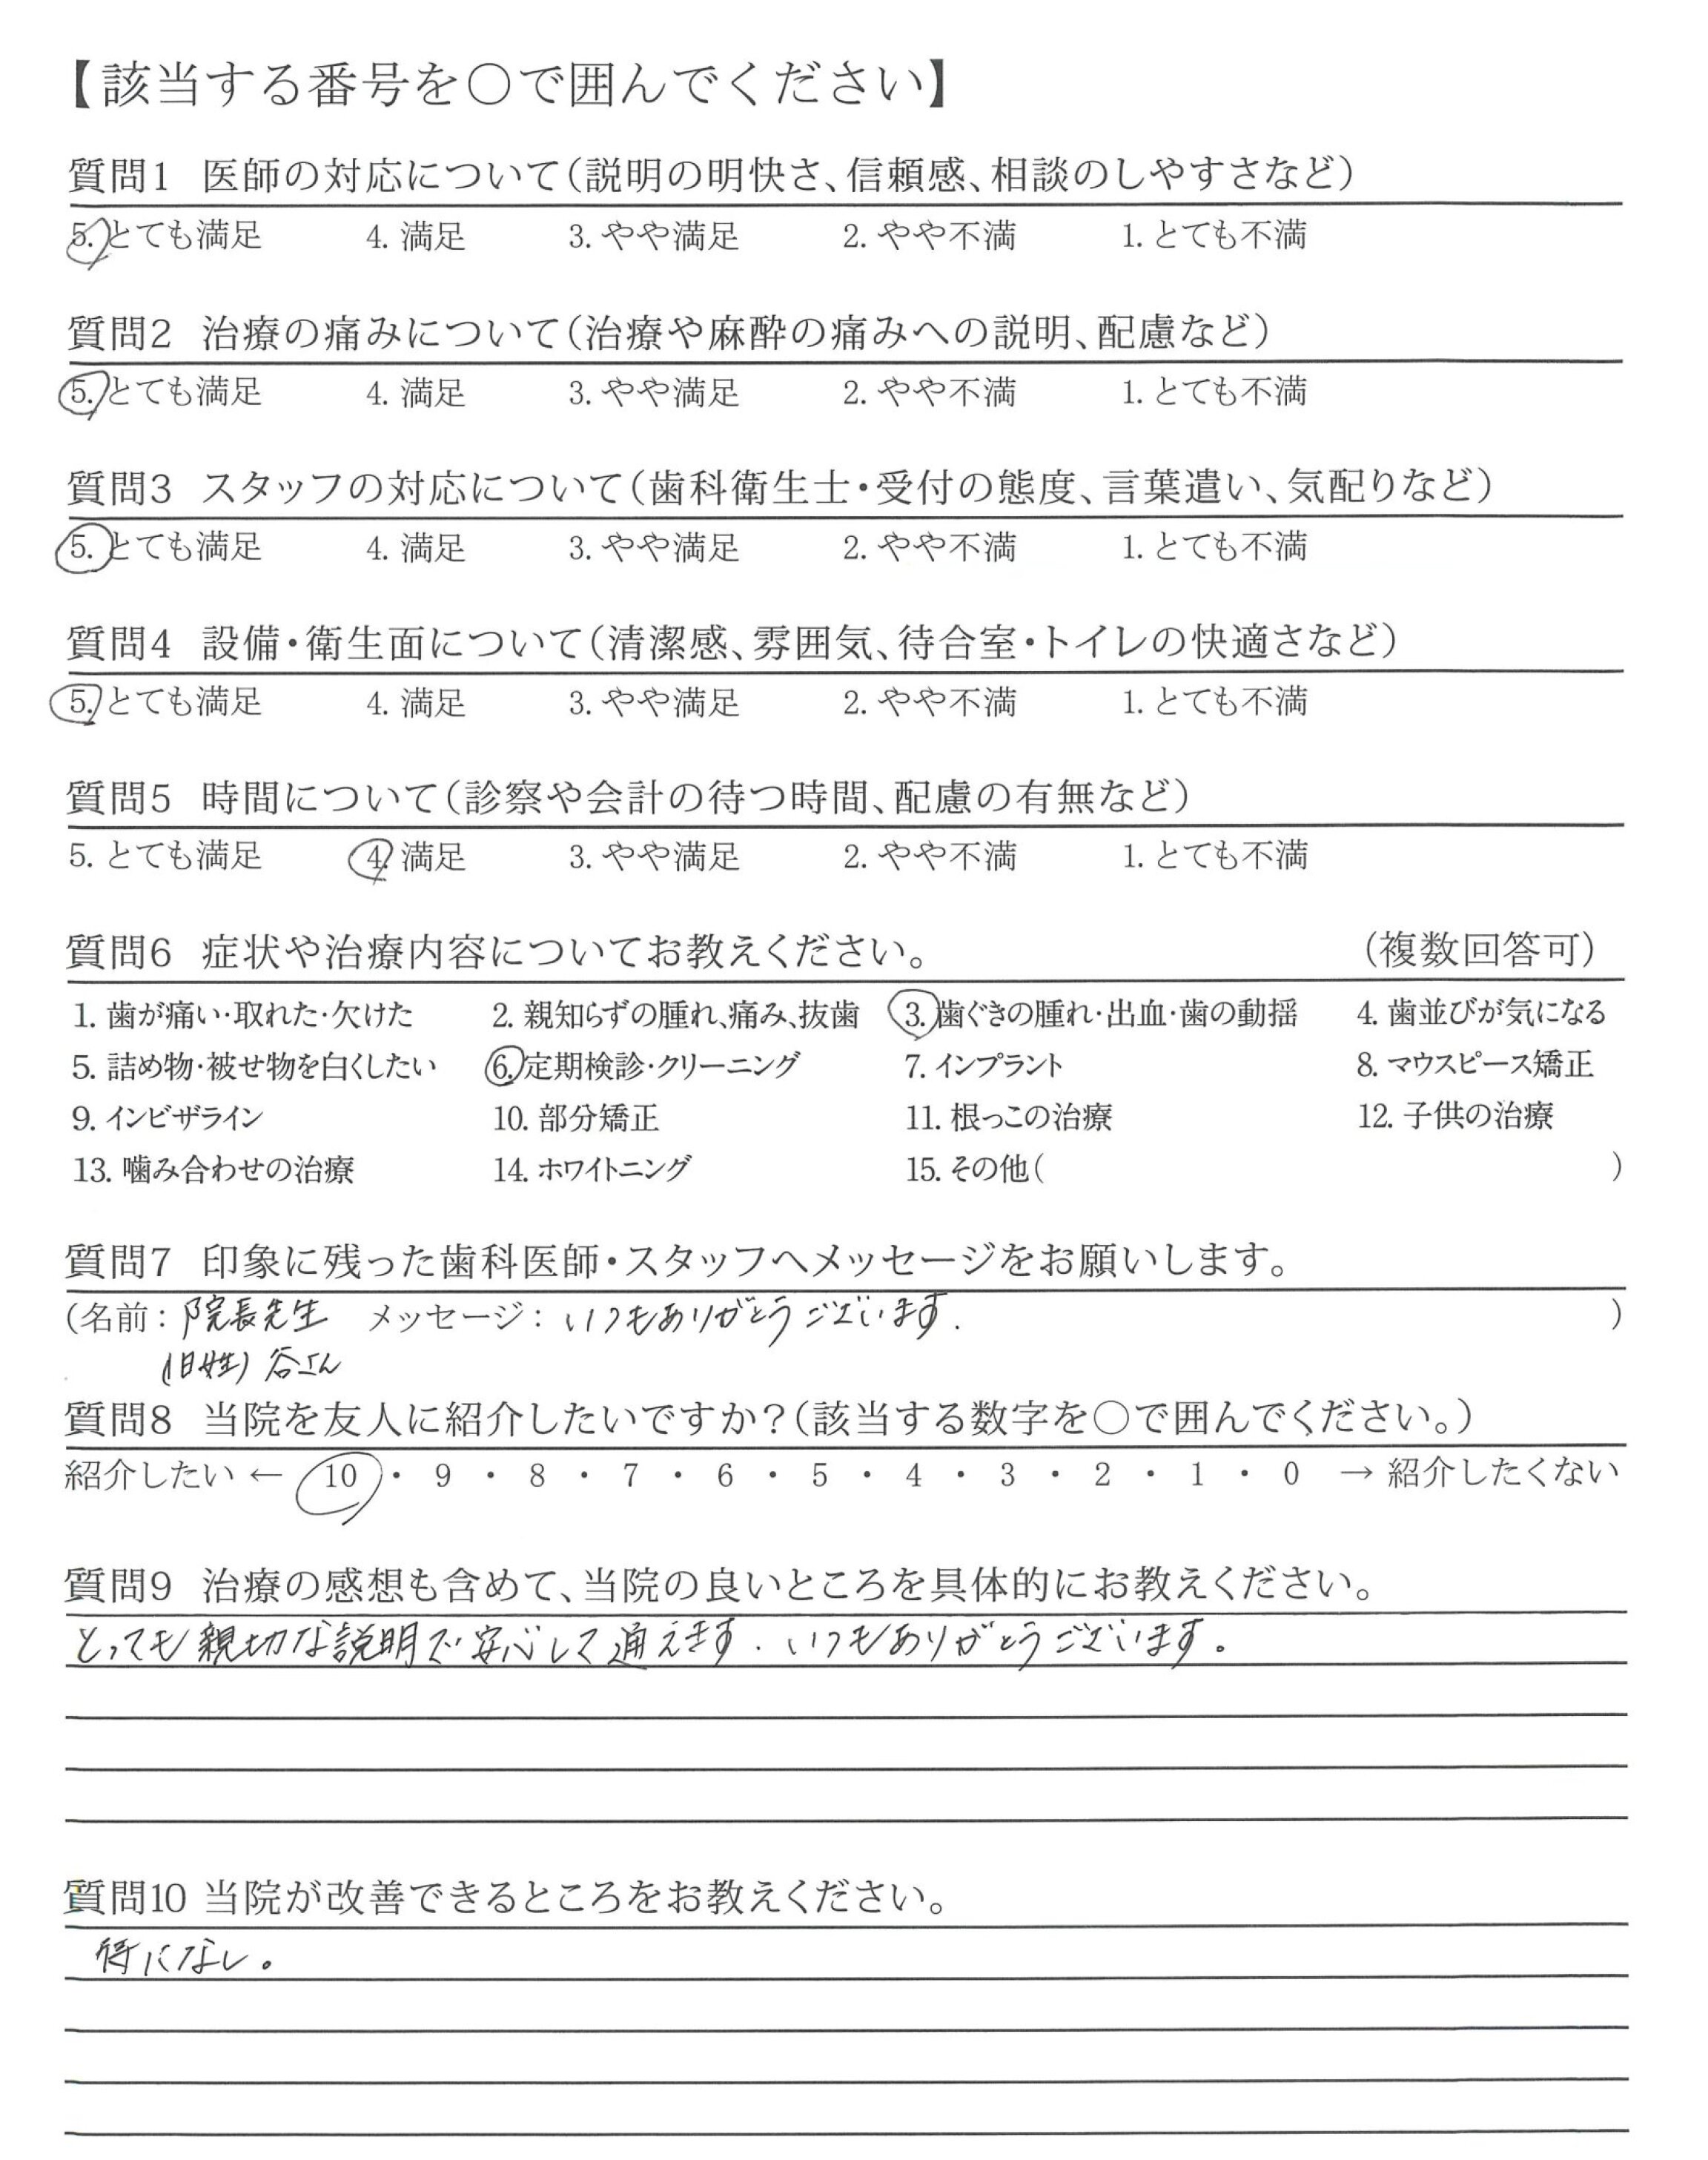 【該当する番号を○で囲んでください】
質問1 医師の対応について（説明の明快さ、信頼感、相談のしやすさなど）
5. とても満足 4. 満足 3. やや満足 2. やや不満 1. とても不満
質問2 治療の痛みについて（治療や麻酔の痛みへの説明、配慮など）
5. とても満足 4. 満足 3. やや満足 2. やや不満 1. とても不満
質問3 スタッフの対応について（歯科衛生士・受付の態度、言葉遣い、気配りなど）
5. とても満足 4. 満足 3. やや満足 2. やや不満 1. とても不満
質問4 設備・衛生面について（清潔感、雰囲気、待合室・トイレの快適さなど）
5. とても満足 4. 満足 3. やや満足 2. やや不満 1. とても不満
質問5 時間について（診察や会計の待つ時間、配慮の有無など）
5. とても満足 4. 満足 3. やや満足 2. やや不満 1. とても不満
質問6 症状や治療内容についてお教えください。 （複数回答可）
1. 歯が痛い・取れた・欠けた 2. 親知らずの腫れ、痛み、抜歯 3. 歯ぐきの腫れ・出血・歯の動揺 4. 歯並びが気になる
5. 詰め物・被せ物を白くしたい 6. 定期検診・クリーニング 7. インプラント 8. マウスピース矯正
9. インビザライン 10. 部分矯正 11. 根っこの治療 12. 子供の治療
13. 噛み合わせの治療 14. ホワイトニング 15. その他（ ）
質問7 印象に残った歯科医師・スタッフへメッセージをお願いします。
（名前：院長先生 メッセージ：いつもありがとうございます. ）
(旧姓) 谷さん
質問8 当院を友人に紹介したいですか？（該当する数字を○で囲んでください。）
紹介したい ← 10 ・ 9 ・ 8 ・ 7 ・ 6 ・ 5 ・ 4 ・ 3 ・ 2 ・ 1 ・ 0 → 紹介したくない
質問9 治療の感想も含めて、当院の良いところを具体的にお教えください。
とっても親切な説明で安心して通えます. いつもありがとうございます。
質問10 当院が改善できるところをお教えください。
特になし。